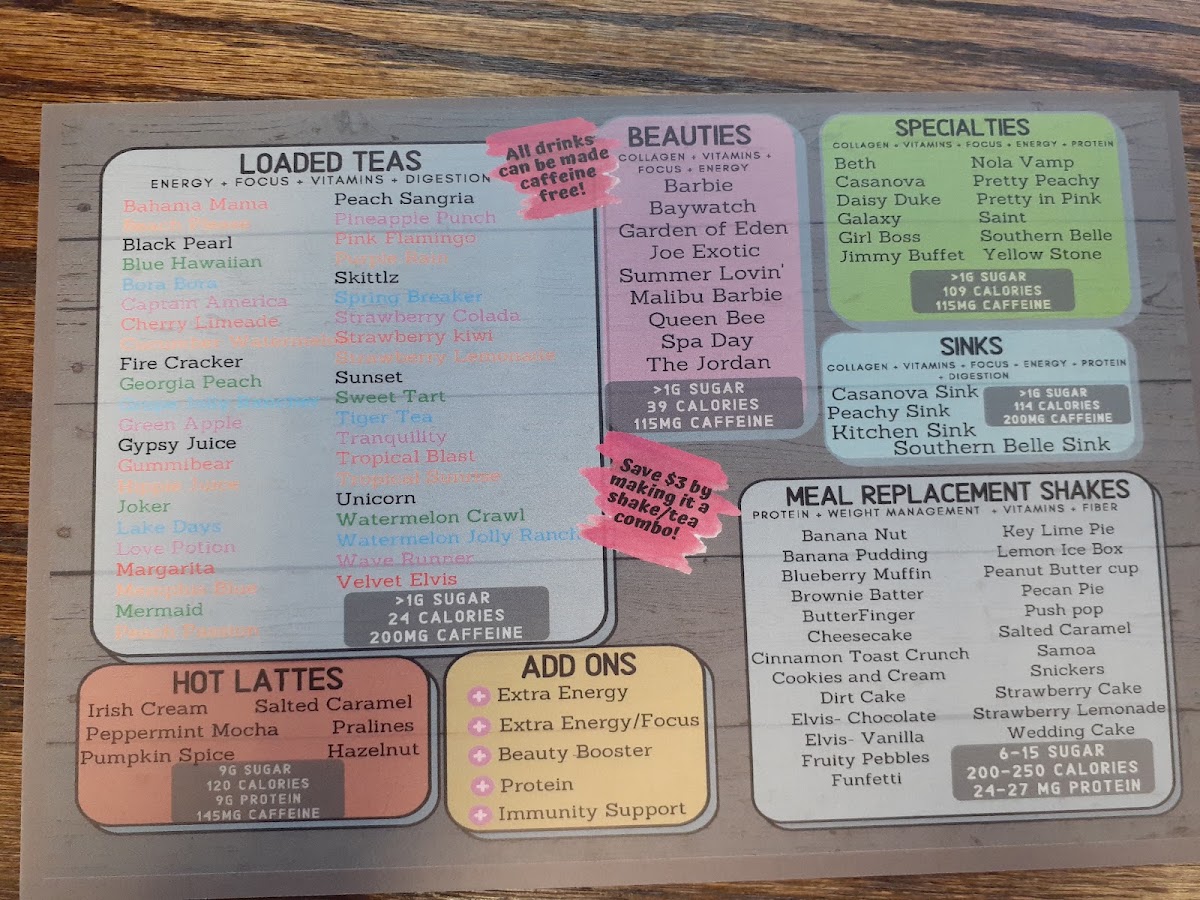 LOADED TEAS
ENERGY + FOCUS + VITAMINS + DIGESTION
Bahama Mama
Black Pearl
Blue Hawaiian
Bora Bora
Captain America
Cherry Limeade
Cucumber Watermelon
Fire Cracker
Georgia Peach
Grape Jolly Rancher
Green Apple
Gypsy Juice
Gummibear
Hippie Juice
Joker
Lake Days
Love Potion
Margarita
Memphis Blue
Mermaid
Peach Passion
Peach Sangria
Pineapple Punch
Pink Flamingo
Purple Rain
Skittlz
Spring Breaker
Strawberry Colada
Strawberry kiwi
Strawberry Lemonade
Sunset
Sweet Tart
Tiger Tea
Tranquility
Tropical Blast
Tropical Sunrise
Unicorn
Watermelon Crawl
Watermelon Jolly Ranch
Wave Runner
Velvet Elvis
>1G SUGAR
24 CALORIES
200MG CAFFEINE
All drinks
can be made
caffeine
free!
BEAUTIES
COLLAGEN + VITAMINS +
FOCUS + ENERGY
Barbie
Baywatch
Garden of Eden
Joe Exotic
Summer Lovin'
Malibu Barbie
Queen Bee
Spa Day
The Jordan
>1G SUGAR
39 CALORIES
115MG CAFFEINE
SPECIALTIES
COLLAGEN + VITAMINS + FOCUS + ENERGY + PROTEIN
Beth
Casanova
Daisy Duke
Galaxy
Girl Boss
Jimmy Buffet
Nola Vamp
Pretty Peachy
Pretty in Pink
Saint
Southern Belle
Yellow Stone
>1G SUGAR
109 CALORIES
115MG CAFFEINE
SINKS
COLLAGEN + VITAMINS + FOCUS + ENERGY + PROTEIN
+ DIGESTION
Casanova Sink
Peachy Sink
Kitchen Sink
Southern Belle Sink
>1G SUGAR
114 CALORIES
200MG CAFFEINE
Save $3 by
making it a
shake/tea
combo!
MEAL REPLACEMENT SHAKES
PROTEIN + WEIGHT MANAGEMENT + VITAMINS + FIBER
Banana Nut
Banana Pudding
Blueberry Muffin
Brownie Batter
ButterFinger
Cheesecake
Cinnamon Toast Crunch
Cookies and Cream
Dirt Cake
Elvis- Chocolate
Elvis- Vanilla
Fruity Pebbles
Funfetti
Key Lime Pie
Lemon Ice Box
Peanut Butter cup
Pecan Pie
Push pop
Salted Caramel
Samoa
Snickers
Strawberry Cake
Strawberry Lemonade
Wedding Cake
6-15 SUGAR
200-250 CALORIES
24-27 MG PROTEIN
HOT LATTES
Irish Cream
Peppermint Mocha
Pumpkin Spice
Salted Caramel
Pralines
Hazelnut
9G SUGAR
120 CALORIES
9G PROTEIN
145MG CAFFEINE
ADD ONS
+ Extra Energy
+ Extra Energy/Focus
+ Beauty Booster
+ Protein
+ Immunity Support